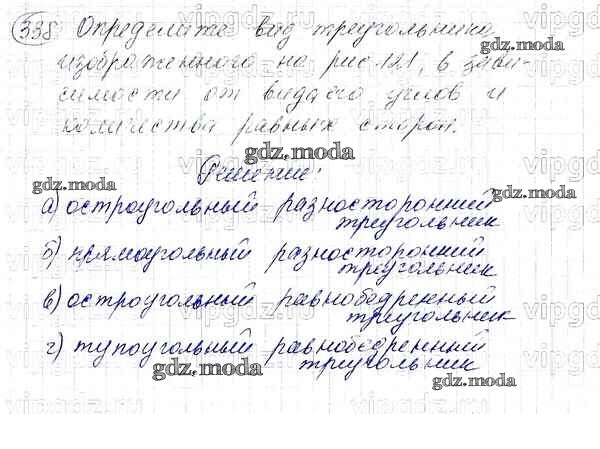 338. Определите вид треугольника,
изображенного на рис. 121, в зави-
симости от вида его углов и
количества равных сторон.
gdz.moda
Решение:
gdz.moda
а) остроугольный разносторонний
gdz.moda
треугольник
б) прямоугольный разносторонний
треугольник
в) остроугольный равнобедренный
треугольник
г) тупоугольный равнобедренный
треугольник
gdz.moda
gdz.moda